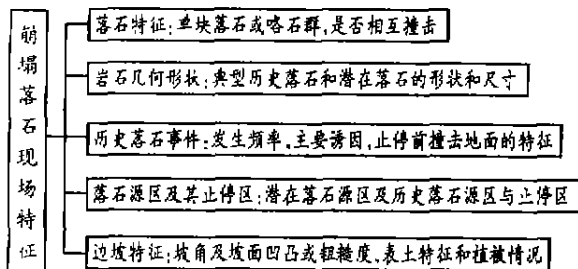 崩塌落石现场特征
落石特征:单块落石或咯石群,是否相互撞击
岩石几何形状:典型历史落石和潜在落石的形状和尺寸
历史落石事件:发生频率,主要诱因,止停前撞击地面的特征
落石源区及其止停区:潜在落石源区及历史落石源区与止停区
边坡特征:坡角及坡面凹凸或粗糙度、表土特征和植被情况